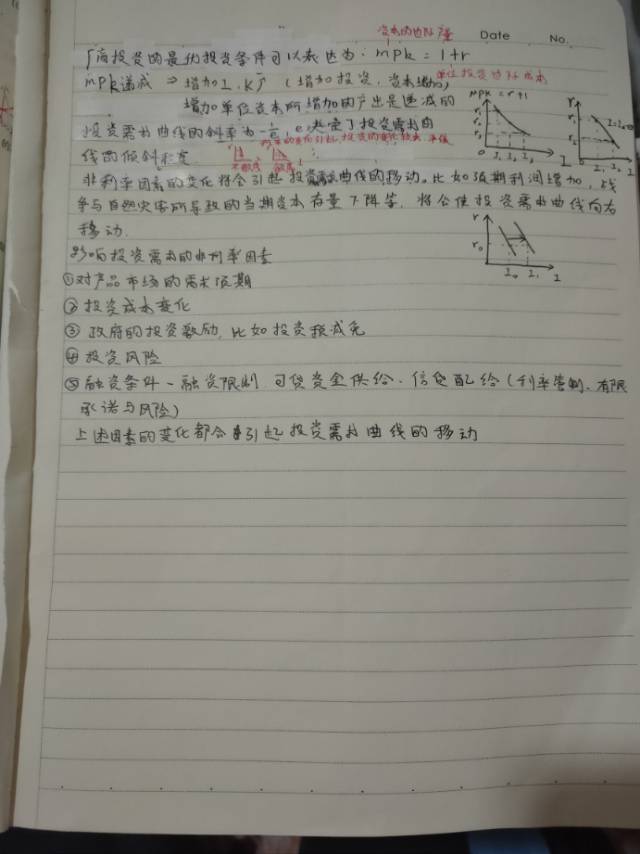 资本的边际产量
Date No.
厂商投资的最优投资条件可以表达为: MPk = 1+r
MPk递减 ⇒ 增加I, K↑ (增加投资, 资本增加) 单位投资边际成本
增加单位资本所增加的产出是递减的
MPK = r+1
投资需求曲线的斜率为-1/e, e决定了投资需求曲
线的倾斜程度
不敏感 敏感
非利率因素的变化将会引起投资需求曲线的移动。比如预期利润增加, 战
争与自然灾害所导致的当期资本存量下降等, 将会使投资需求曲线向右
移动.
影响投资需求的非利率因素
①对产品市场的需求预期
②投资成本变化
③政府的投资激励, 比如投资税减免
④投资风险
⑤融资条件-融资限制 可贷资金供给、信贷配给(利率管制、有限
承诺与风险)
上述因素的变化都会引起投资需求曲线的移动
r
r₀
I₀ I₁ I